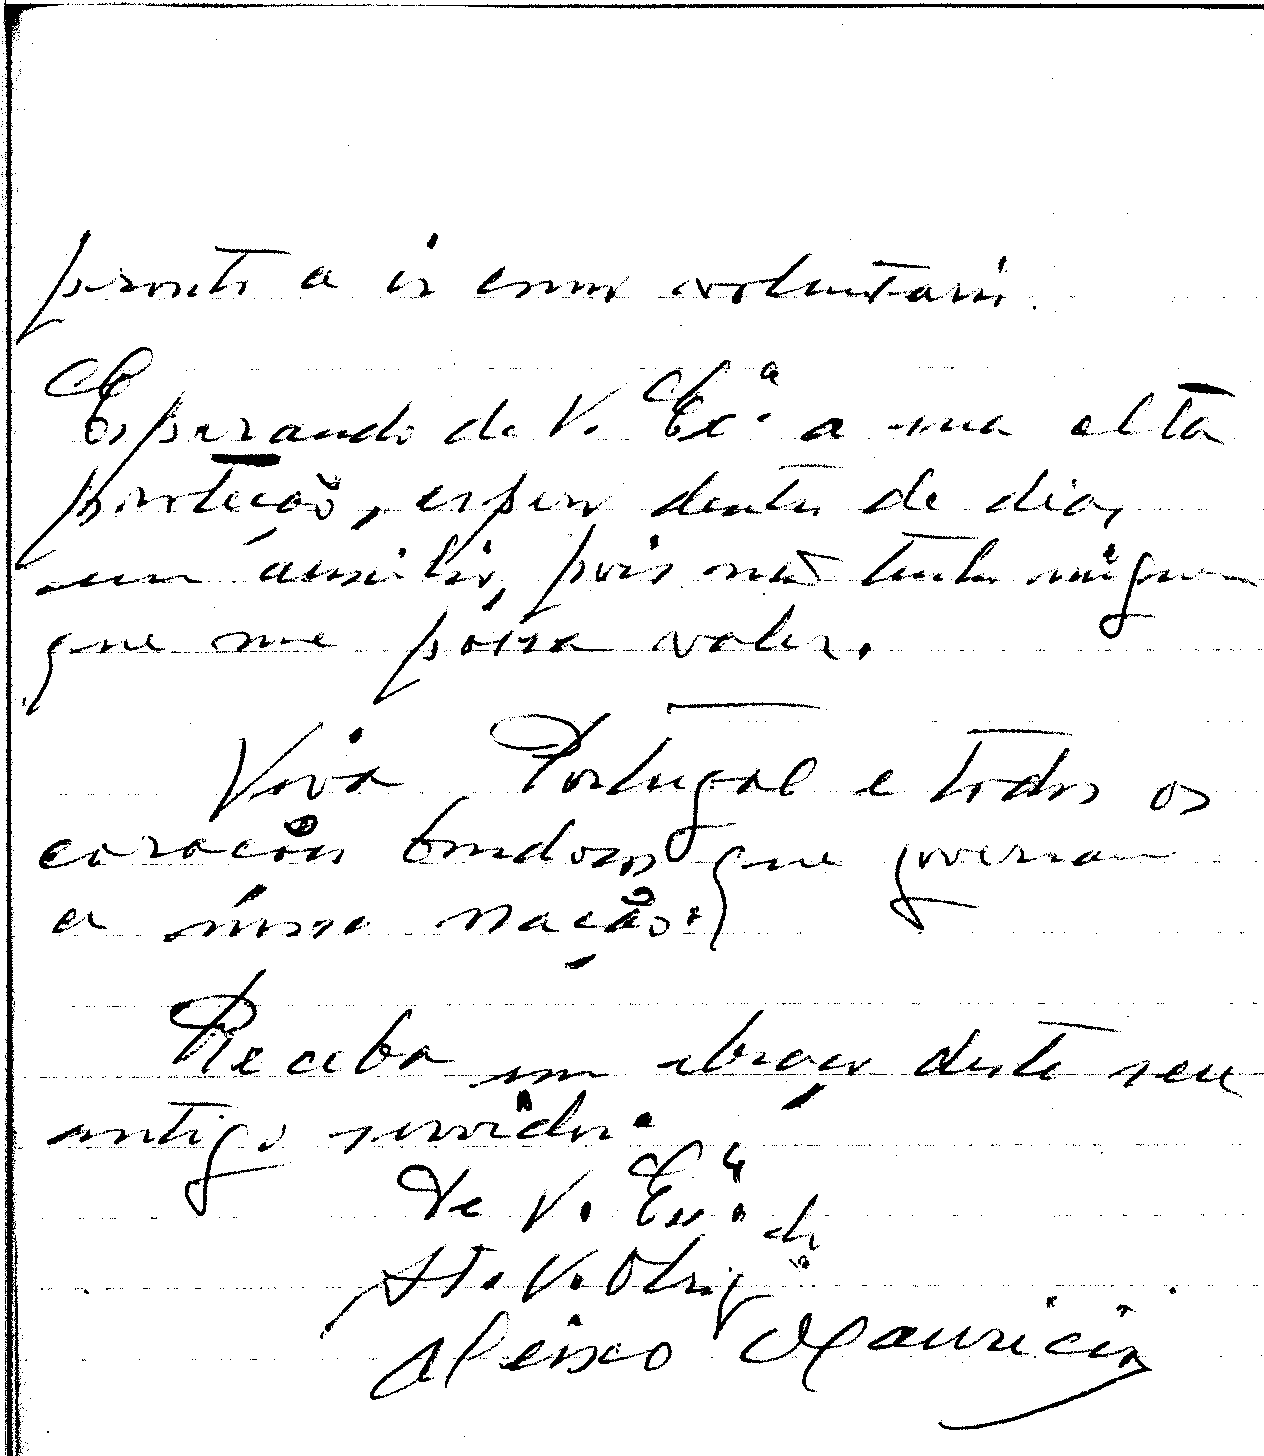 pronto a ir como voluntario.
Esperando de V. Exª a sua alta
proteção, espero dentro de dias
um áuxilio, pois não tenho ninguem
que me póssa valer.
Viva Portugal e todos os
corações bondosos que governam
a nóssa nação.
Receba um abraço deste seu
antigo servidor.
De V. Exª
At. V. Obrigº
Aleixo Mauricio